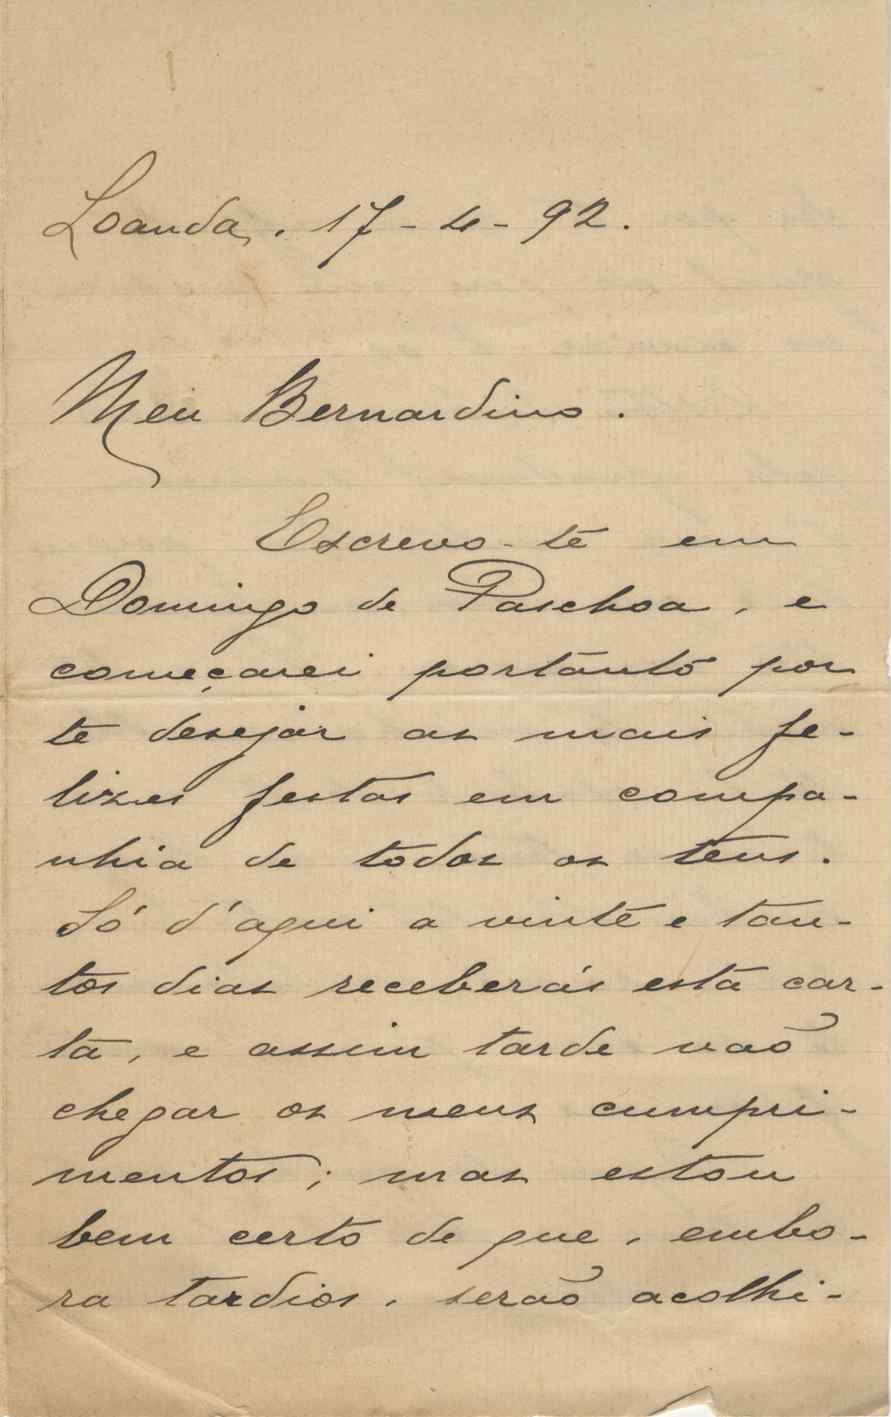 Loanda, 17-4-92.
Meu Bernardino.
Escrevo-te em
Domingo de Paschoa, e
começarei portanto por
te desejar as mais fe-
lizes festas em compa-
nhia de todos os teus.
Só d'aqui a vinte e tan-
tos dias receberás esta car-
ta, e assim tarde vaõ
chegar os meus cumpri-
mentos; mas estou
bem certo de que, embo-
ra tardios, seraõ acolhi-